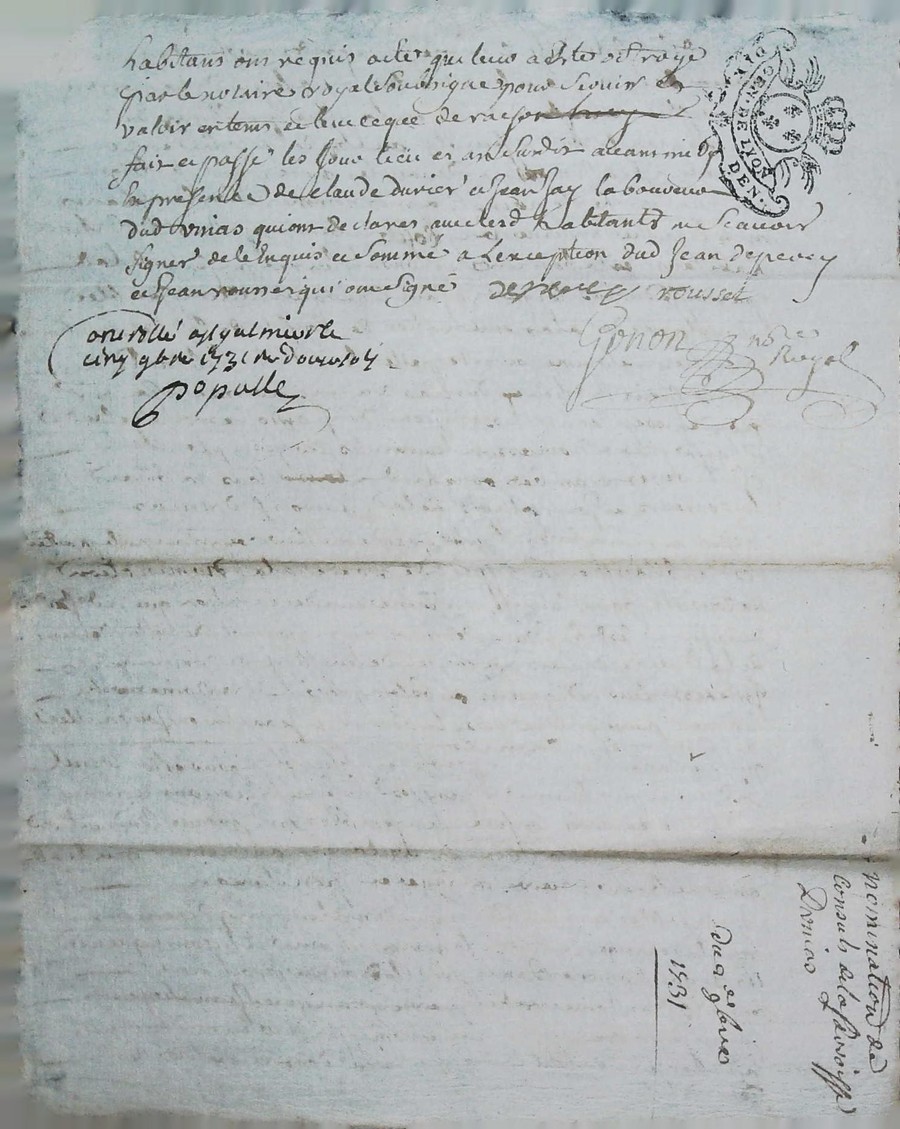 habitans ont requis acte qui leur a este octroyé
par le notaire royal soussigné pour servir et
valoir en tems et lieu ce que de raison
fait et passé les jour lieu et an susdit avant midy
en presence de claude durier et jean jay laboureur
dud virias qui ont declares avec lesd habitants ne scavoir
signer de ce enquis et sommé a lexception dud jean
et jean rousset qui ont signé rousset
Gonon no.re Royal
controllé a st galmier le
cinq 9bre 1731 Rc douze sols
populle
GEN. DE LYON
DEN.
nomination de
consuls de la paroisse
du 4
1731